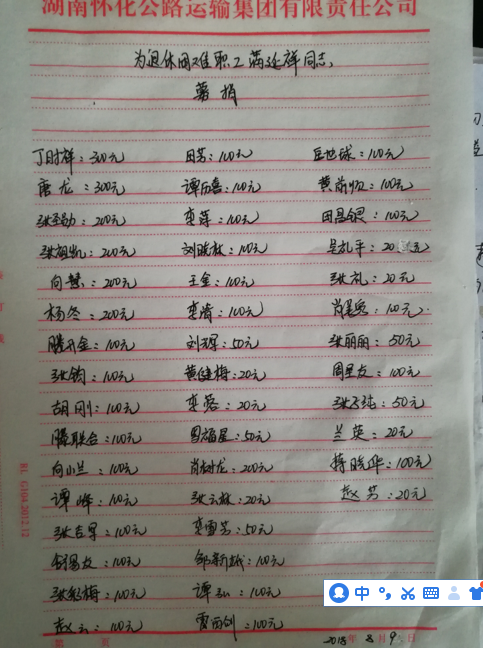 湖南怀化公路运输集团有限责任公司
为退休困难职工满延祥同志
募捐
丁时祥：300元 田芳：100元 匡地球：100元
唐龙：300元 谭历喜：100元 黄：100元
张：200元 李萍：100元 田昌银：100元
张祖凯：200元 刘晓敏：100元 吴礼平：20元
向慧：200元 王金：100元 张礼：20元
杨冬：200元 李涛：100元 肖：100元
滕升金：100元 刘辉：50元 张丽丽：50元
张钧：100元 黄健梅：20元 周星友：100元
胡刚：100元 李蓉：20元 张纯：50元
滕联合：100元 周福星：50元 兰英：20元
向小兰：100元 肖树龙：200元 蒋晓华：100元
谭峰：100元 张云林：20元 赵芳：20元
张吉早：100元 李雪芳：50元
舒易友：100元 邹新斌：100元
张彩梅：100元 谭弘：100元
赵云：100元 雷雨剑：100元
第 页 2018年8月9日
HL G104-2012.12
中